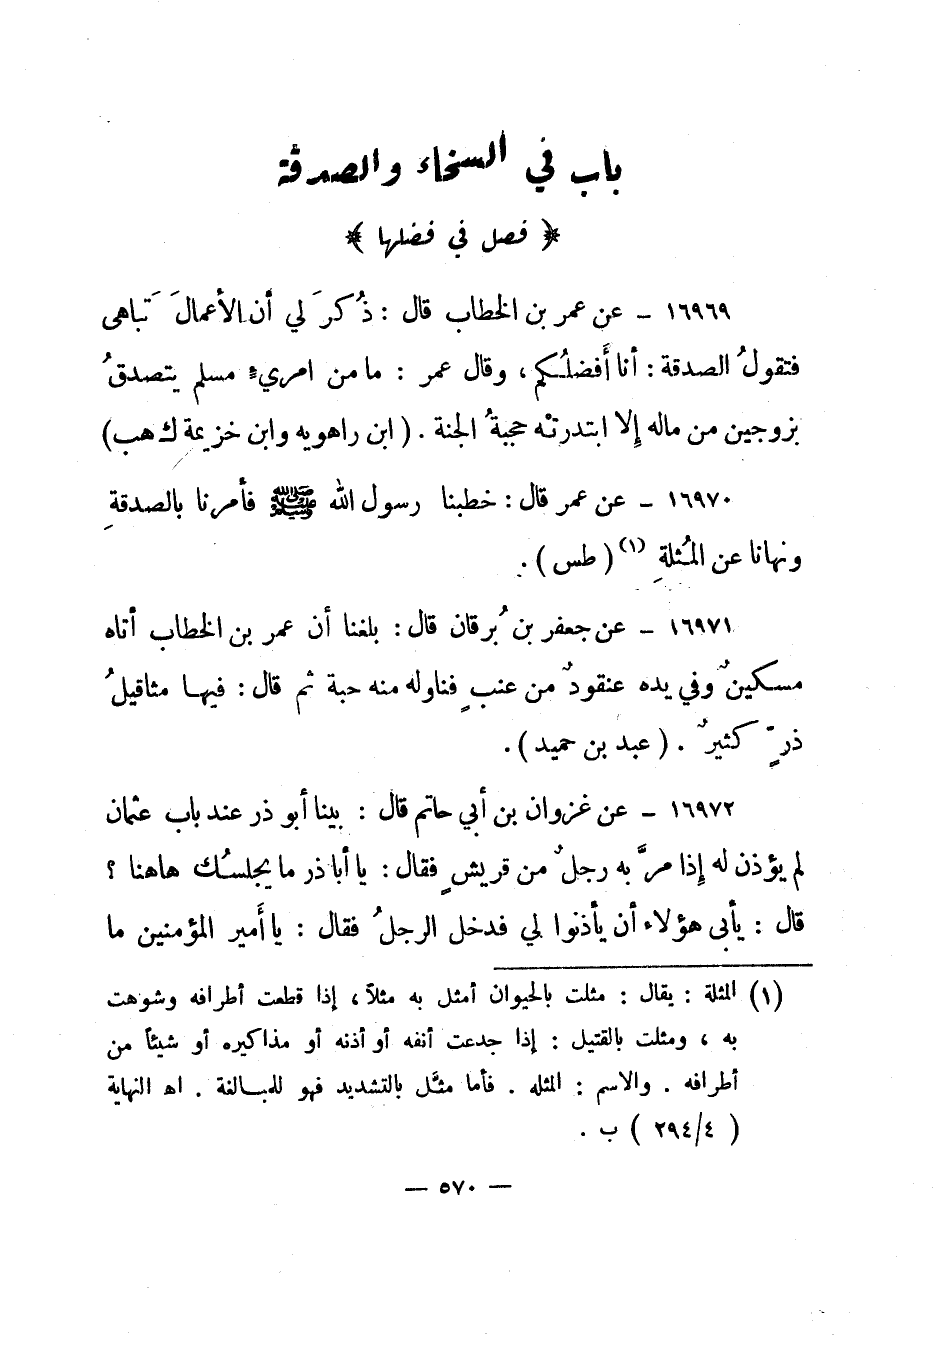 باب في السخاء والصدقة
﴿ فصل في فضلها ﴾
١٦٩٦٩ ـ عن عمر بن الخطاب قال : ذُكرَ لي أن الأعمالَ تَباهى
فتقولُ الصدقة : أنا أَفضلُكم ، وقال عمر : ما من امريءٍ مسلم يتصدقُ
بزوجين من ماله إِلا ابتدرته حجبةُ الجنة . ( ابن راهويه وابن خزيمة ك هب)
١٦٩٧٠ ـ عن عمر قال : خطبنا رسول الله ﷺ فأمرنا بالصدقةِ
ونهانا عن المُثلةِ (١) ( طس ) .
١٦٩٧١ ـ عن جعفر بن بُرقان قال : بلغنا أن عمر بن الخطاب أتاه
مسكينٌ وفي يده عنقودٌ من عنبٍ فناوله منه حبة ثم قال : فيها مثاقيلُ
ذرٍّ كثيرٌ . ( عبد بن حميد ) .
١٦٩٧٢ ـ عن غزوان بن أبي حاتم قال : بينا أبو ذر عند باب عثمان
لم يؤذن له إِذا مرَّ به رجلٌ من قريشٍ فقال : يا أبا ذر ما يجلسُك هاهنا ؟
قال : يأبى هؤلاء أن يأذنوا لي فدخل الرجلُ فقال : يا أَمير المؤمنين ما
(١) المثلة : يقال : مثلت بالحيوان أمثل به مثلاً ، إذا قطعت أطرافه وشوهت
به ، ومثلت بالقتيل : إذا جدعت أنفه أو أذنه أو مذاكيره أو شيئاً من
أطرافه . والاسم : المثله . فأما مثَّل بالتشديد فهو للمبالغة . اه النهاية
( ٢٩٤/٤ ) ب .
— ٥٧٠ —